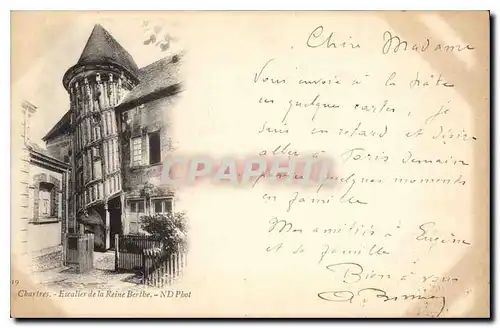 Chère Madame
Vous envoie à la hâte
ces quelques cartes, je
suis en retard et désire
aller à Paris demain
passer quelques moments
en famille
Mes amitiés à Eugène
et sa famille
Bien à vous
CPARAMA
19
Chartres. - Escalier de la Reine Berthe. - ND Phot